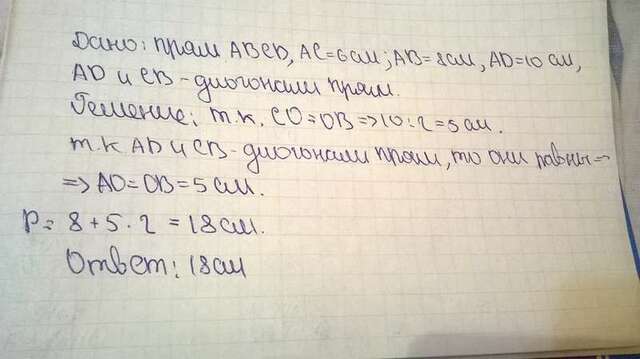 Дано: прям ABCD, AC=6см; AB=8см, AD=10 см,
AD и CB - диогонали прям.
Решение: т.к. CO=OB=>10:2=5 см.
т.к AD и CB - диогонали прям, то они равны =>
=> AO=OB=5 см.
P= 8+5·2=18 см.
Ответ: 18 см